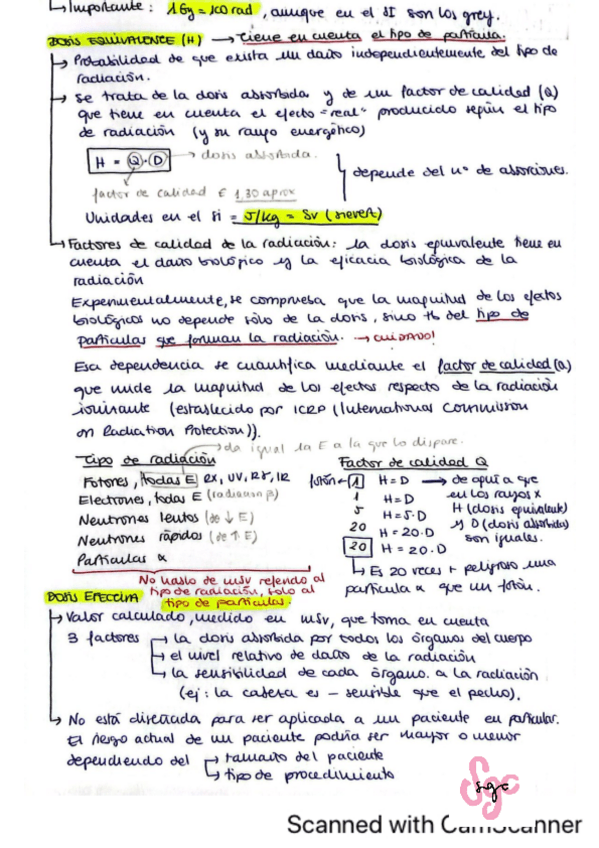 ↳Importante: 1 Gy = 100 rad, aunque en el SI son los grey.
DOSIS EQUIVALENCE (H) → Tiene en cuenta el tipo de partícula.
↳ Probabilidad de que exista un daño independientemente del tipo de
radiación.
↳ se trata de la dosis absorbida y de un factor de calidad (Q)
que tiene en cuenta el efecto "real" producido según el tipo
de radiación (y su rango energético)
H = Q · D → dosis absorbida.
depende del nº de absorciones.
factor de calidad € 1,30 aprox
Unidades en el SI = J/kg = Sv (sievert)
↳ Factores de calidad de la radiación: la dosis equivalente tiene en
cuenta el daño biológico y la eficacia biológica de la
radiación
Experimentalmente, se comprueba que la magnitud de los efectos
biológicos no depende sólo de la dosis, sino tb del tipo de
partículas que forman la radiación. → CUIDADO!
Esa dependencia se cuantifica mediante el factor de calidad (Q)
que mide la magnitud de los efectos respecto de la radiación
ionizante (establecido por ICRP (International Commission
on Radiation Protection)).
→ da igual la E a la que lo dispare.
Tipo de radiación Factor de calidad Q
Fotones, todas E RX, UV, Rγ, IR fotón ← 1 H = D → de aquí a que
Electrones, todas E (radiación β) 1 H = D en los rayos x
Neutrones lentos (de ↓ E) 5 H = 5·D H (dosis equivalente)
Neutrones rápidos (de ↑ E) 20 H = 20·D y D (dosis absorbida)
Partículas α 20 H = 20·D son iguales.
↳ Es 20 veces + peligroso una
partícula α que un fotón.
No hablo de mSv refiriendo al
tipo de radiación, solo al
tipo de partículas.
DOSIS EFECTIVA
↳ Valor calculado, medido en mSv, que toma en cuenta
3 factores → la dosis absorbida por todos los órganos del cuerpo
→ el nivel relativo de daño de la radiación
↳ la sensibilidad de cada órgano a la radiación
(ej: la cabeza es - sensible que el pecho).
↳ No está diseñada para ser aplicada a un paciente en particular.
El riesgo actual de un paciente podría ser mayor o menor
dependiendo del → tamaño del paciente
↳ tipo de procedimiento
sgc
Scanned with CamScanner